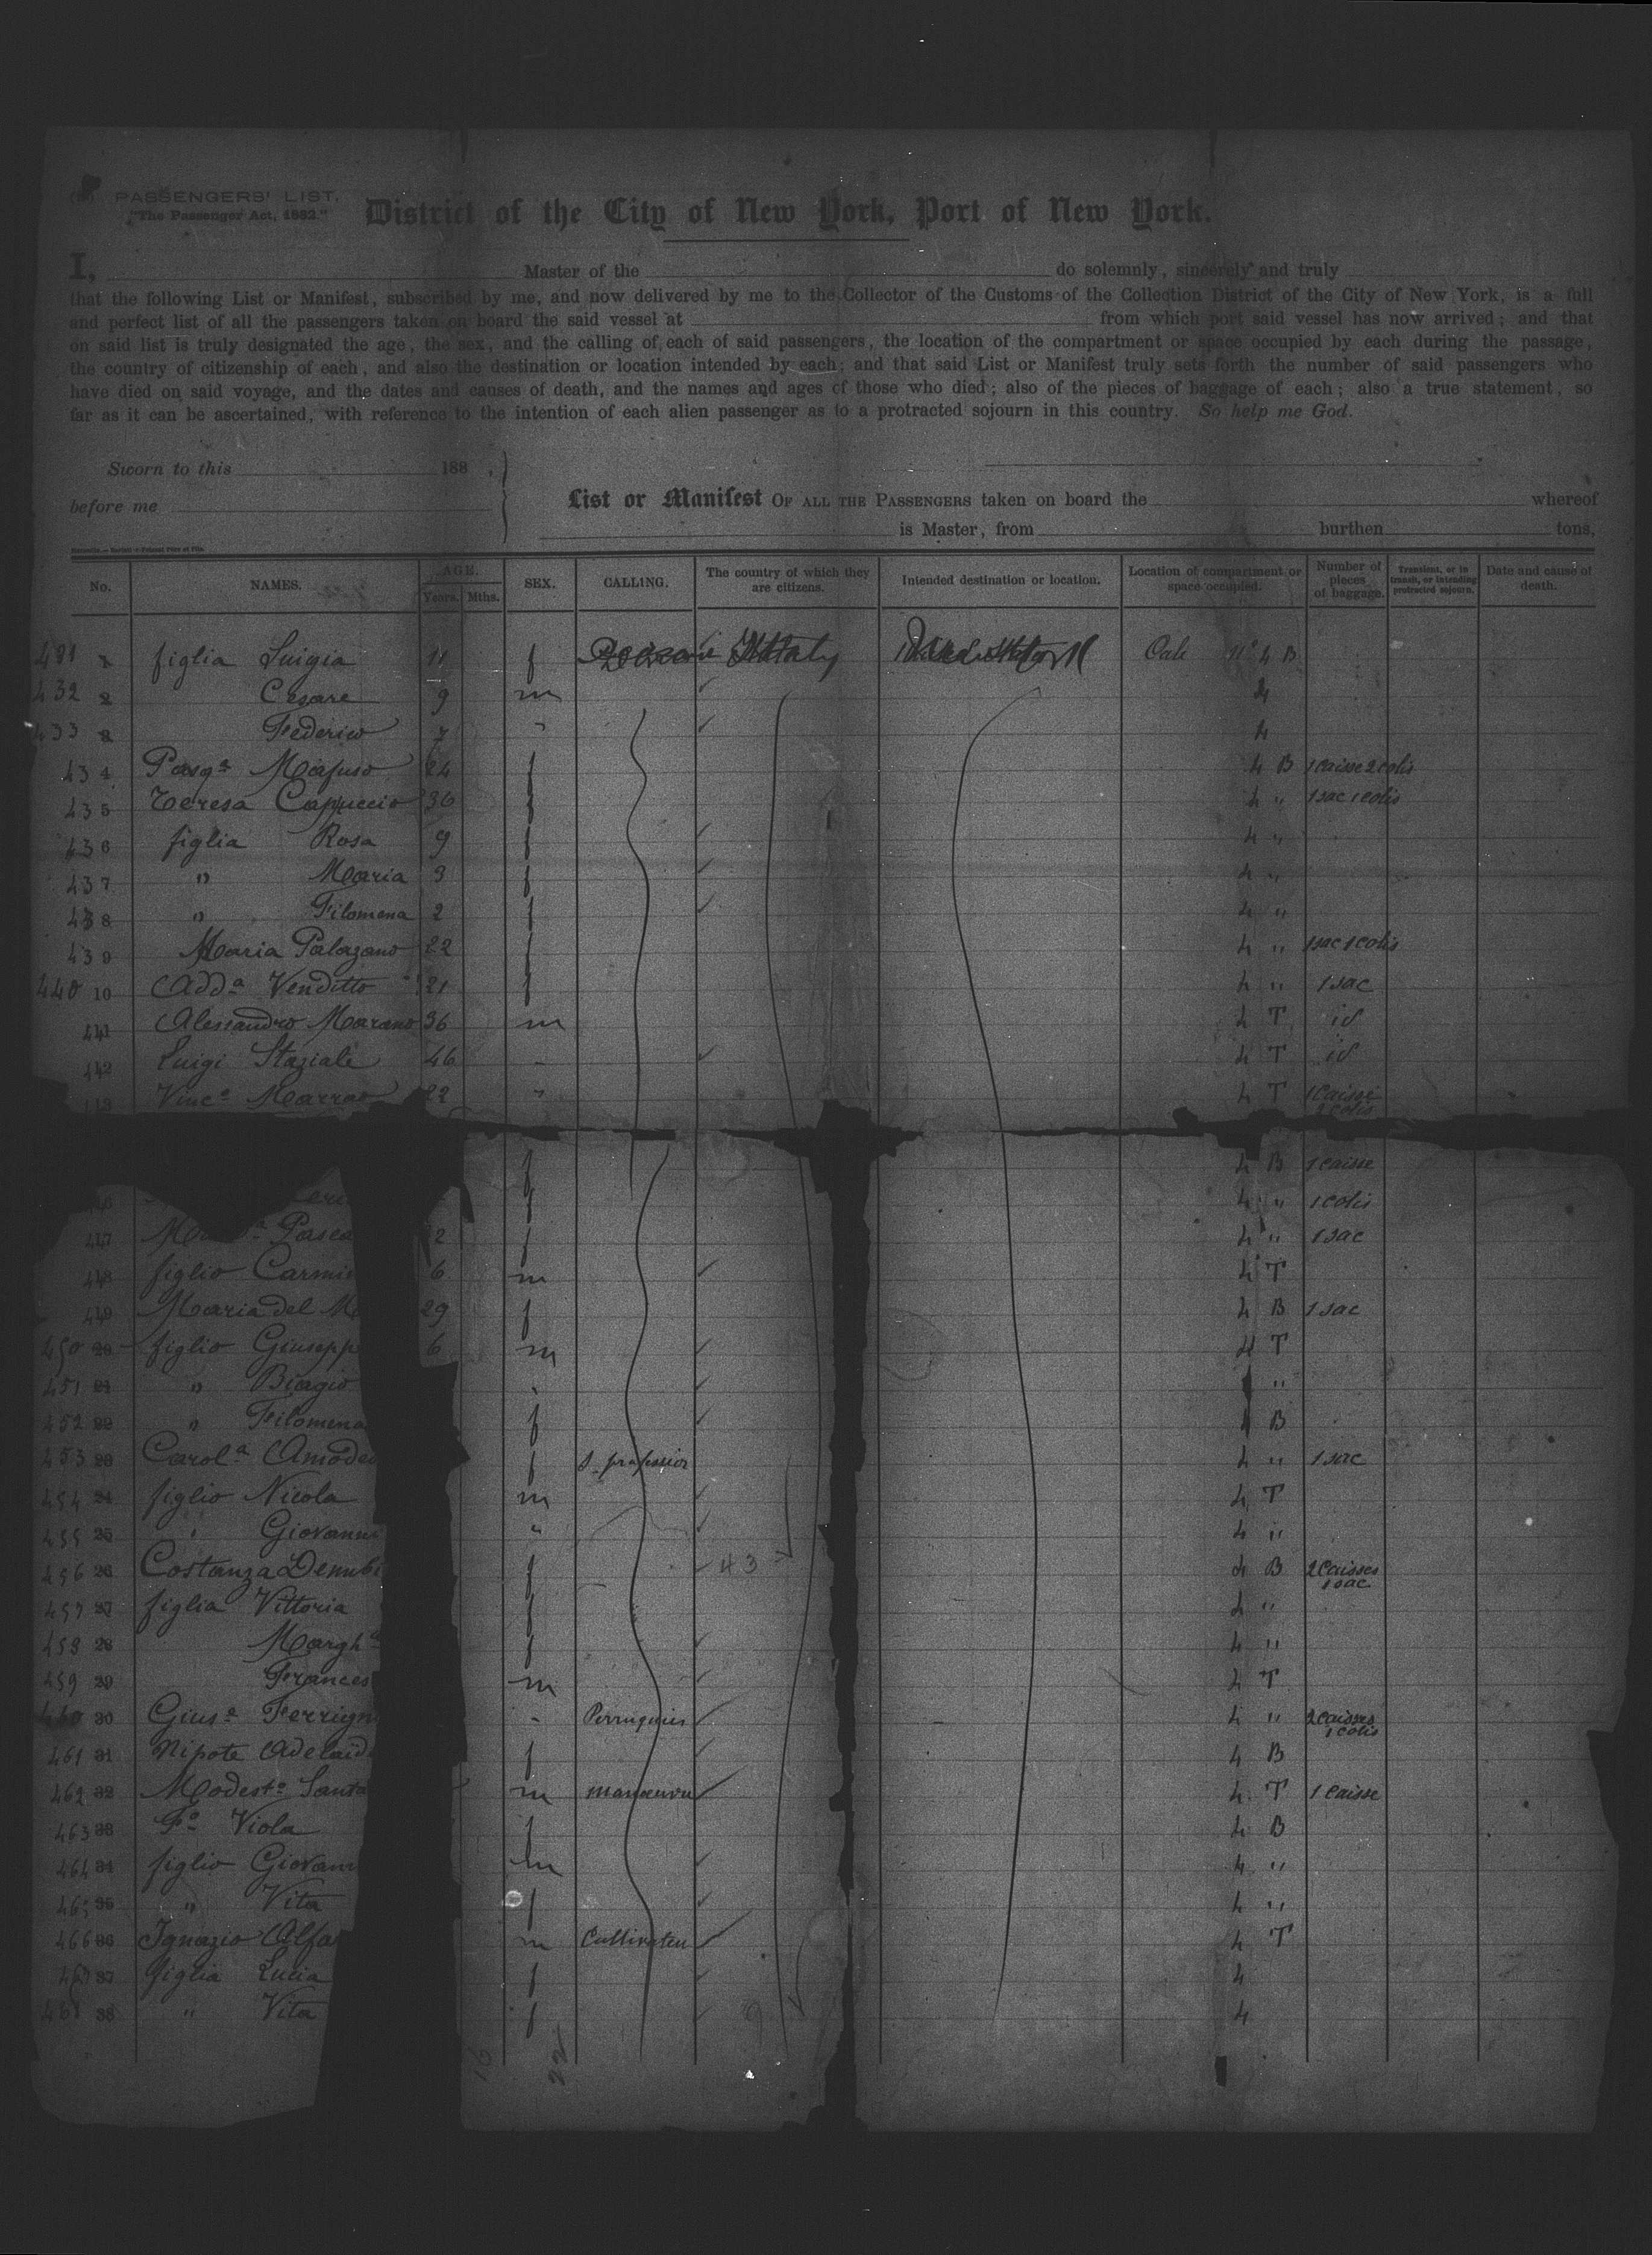 PASSENGERS' LIST.
"The Passenger Act, 1882."
District of the City of New York, Port of New York.
I, Master of the do solemnly, sincerely and truly
that the following List or Manifest, subscribed by me, and now delivered by me to the Collector of the Customs of the Collection District of the City of New York, is a full
and perfect list of all the passengers taken on board the said vessel at from which port said vessel has now arrived; and that
on said list is truly designated the age, the sex, and the calling of each of said passengers, the location of the compartment or space occupied by each during the passage,
the country of citizenship of each, and also the destination or location intended by each; and that said List or Manifest truly sets forth the number of said passengers who
have died on said voyage, and the dates and causes of death, and the names and ages of those who died; also of the pieces of baggage of each; also a true statement, so
far as it can be ascertained, with reference to the intention of each alien passenger as to a protracted sojourn in this country. So help me God.
Sworn to this 188 .
before me
List or Manifest OF ALL THE PASSENGERS taken on board the whereof
is Master, from burthen tons,
No. NAMES. AGE. Years. Mths. SEX. CALLING. The country of which they are citizens. Intended destination or location. Location of compartment or space occupied. Number of pieces of baggage. Transient, or in transit, or intending protracted sojourn. Date and cause of death.
431 figlia Luigia 11 f Italy 4 B
432 2 Cesare 9 m 4
433 3 Federico 7 " 4
434 Pasqa 24 f 4 B 1 caisse 2 colis
435 Teresa Capuccio 36 f 4 " 1 sac 1 colis
436 figlia Rosa 9 f 4 "
437 " Maria 3 f 4 "
438 " Filomena 2 f 4 "
439 Maria Palazano 22 f 4 " 1 sac 1 colis
440 10 Adda Venditto 21 f 4 " 1 sac
441 Alessandro Marano 36 m 4 T id
442 Luigi Staziale 46 " 4 T id
443 Vinco Marrao 22 " 4 T 1 Caisse 2 colis
f 4 B 1 caisse
f 4 " 1 colis
447 Pasca 2 f 4 " 1 sac
448 figlio Carmi 6 m 4 T
449 Maria del M 29 f 4 B 1 sac
450 20 figlio Giusepp 6 m 4 T
451 21 " Biagio " "
452 22 " Filomena f 4 B
453 23 Carola Amodeo f S. profession 4 " 1 sac
454 24 figlio Nicola m 4 T
455 25 " Giovanni " 4 "
456 26 Costanza Denub f 43 4 B 2 Caisses 1 sac
457 27 figlia Vittoria f 4 "
458 28 Margh f 4 "
459 29 Frances m 4 T
460 30 Giuse Ferrign " Perruquier 4 " 2 caisses 1 colis
461 31 Nipote Adelaid f 4 B
462 32 Modesto Santa m manoeuvre 4 T 1 Caisse
463 33 Fa Viola f 4 B
464 34 figlio Giovann m 4 "
465 35 " Vita f 4 "
466 36 Ignazio Alfa m Cultivateu 4 T
467 37 figlia Lucia f 4
468 38 " Vita f 9 4